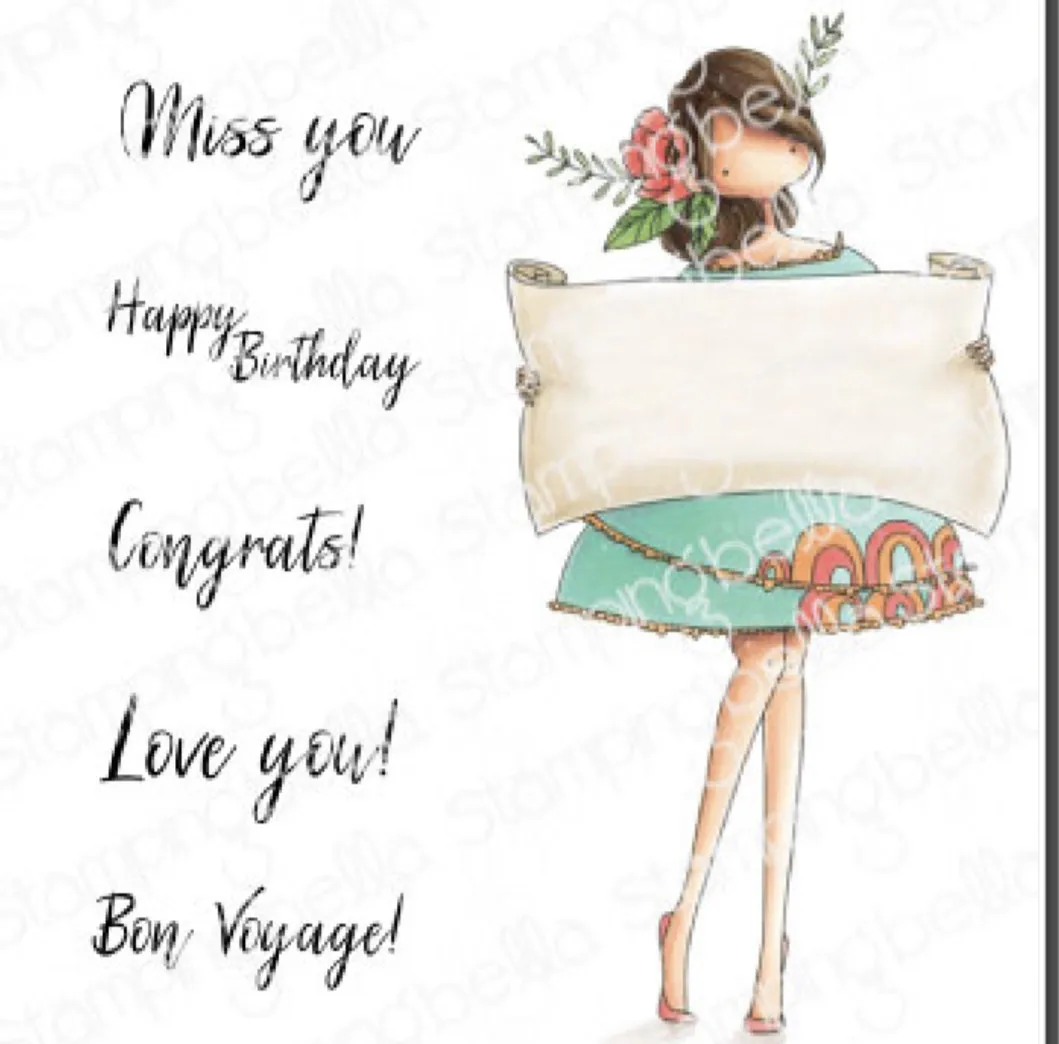 Miss you
Happy
Birthday
Congrats!
Love you!
Bon Voyage!
Stampingbella